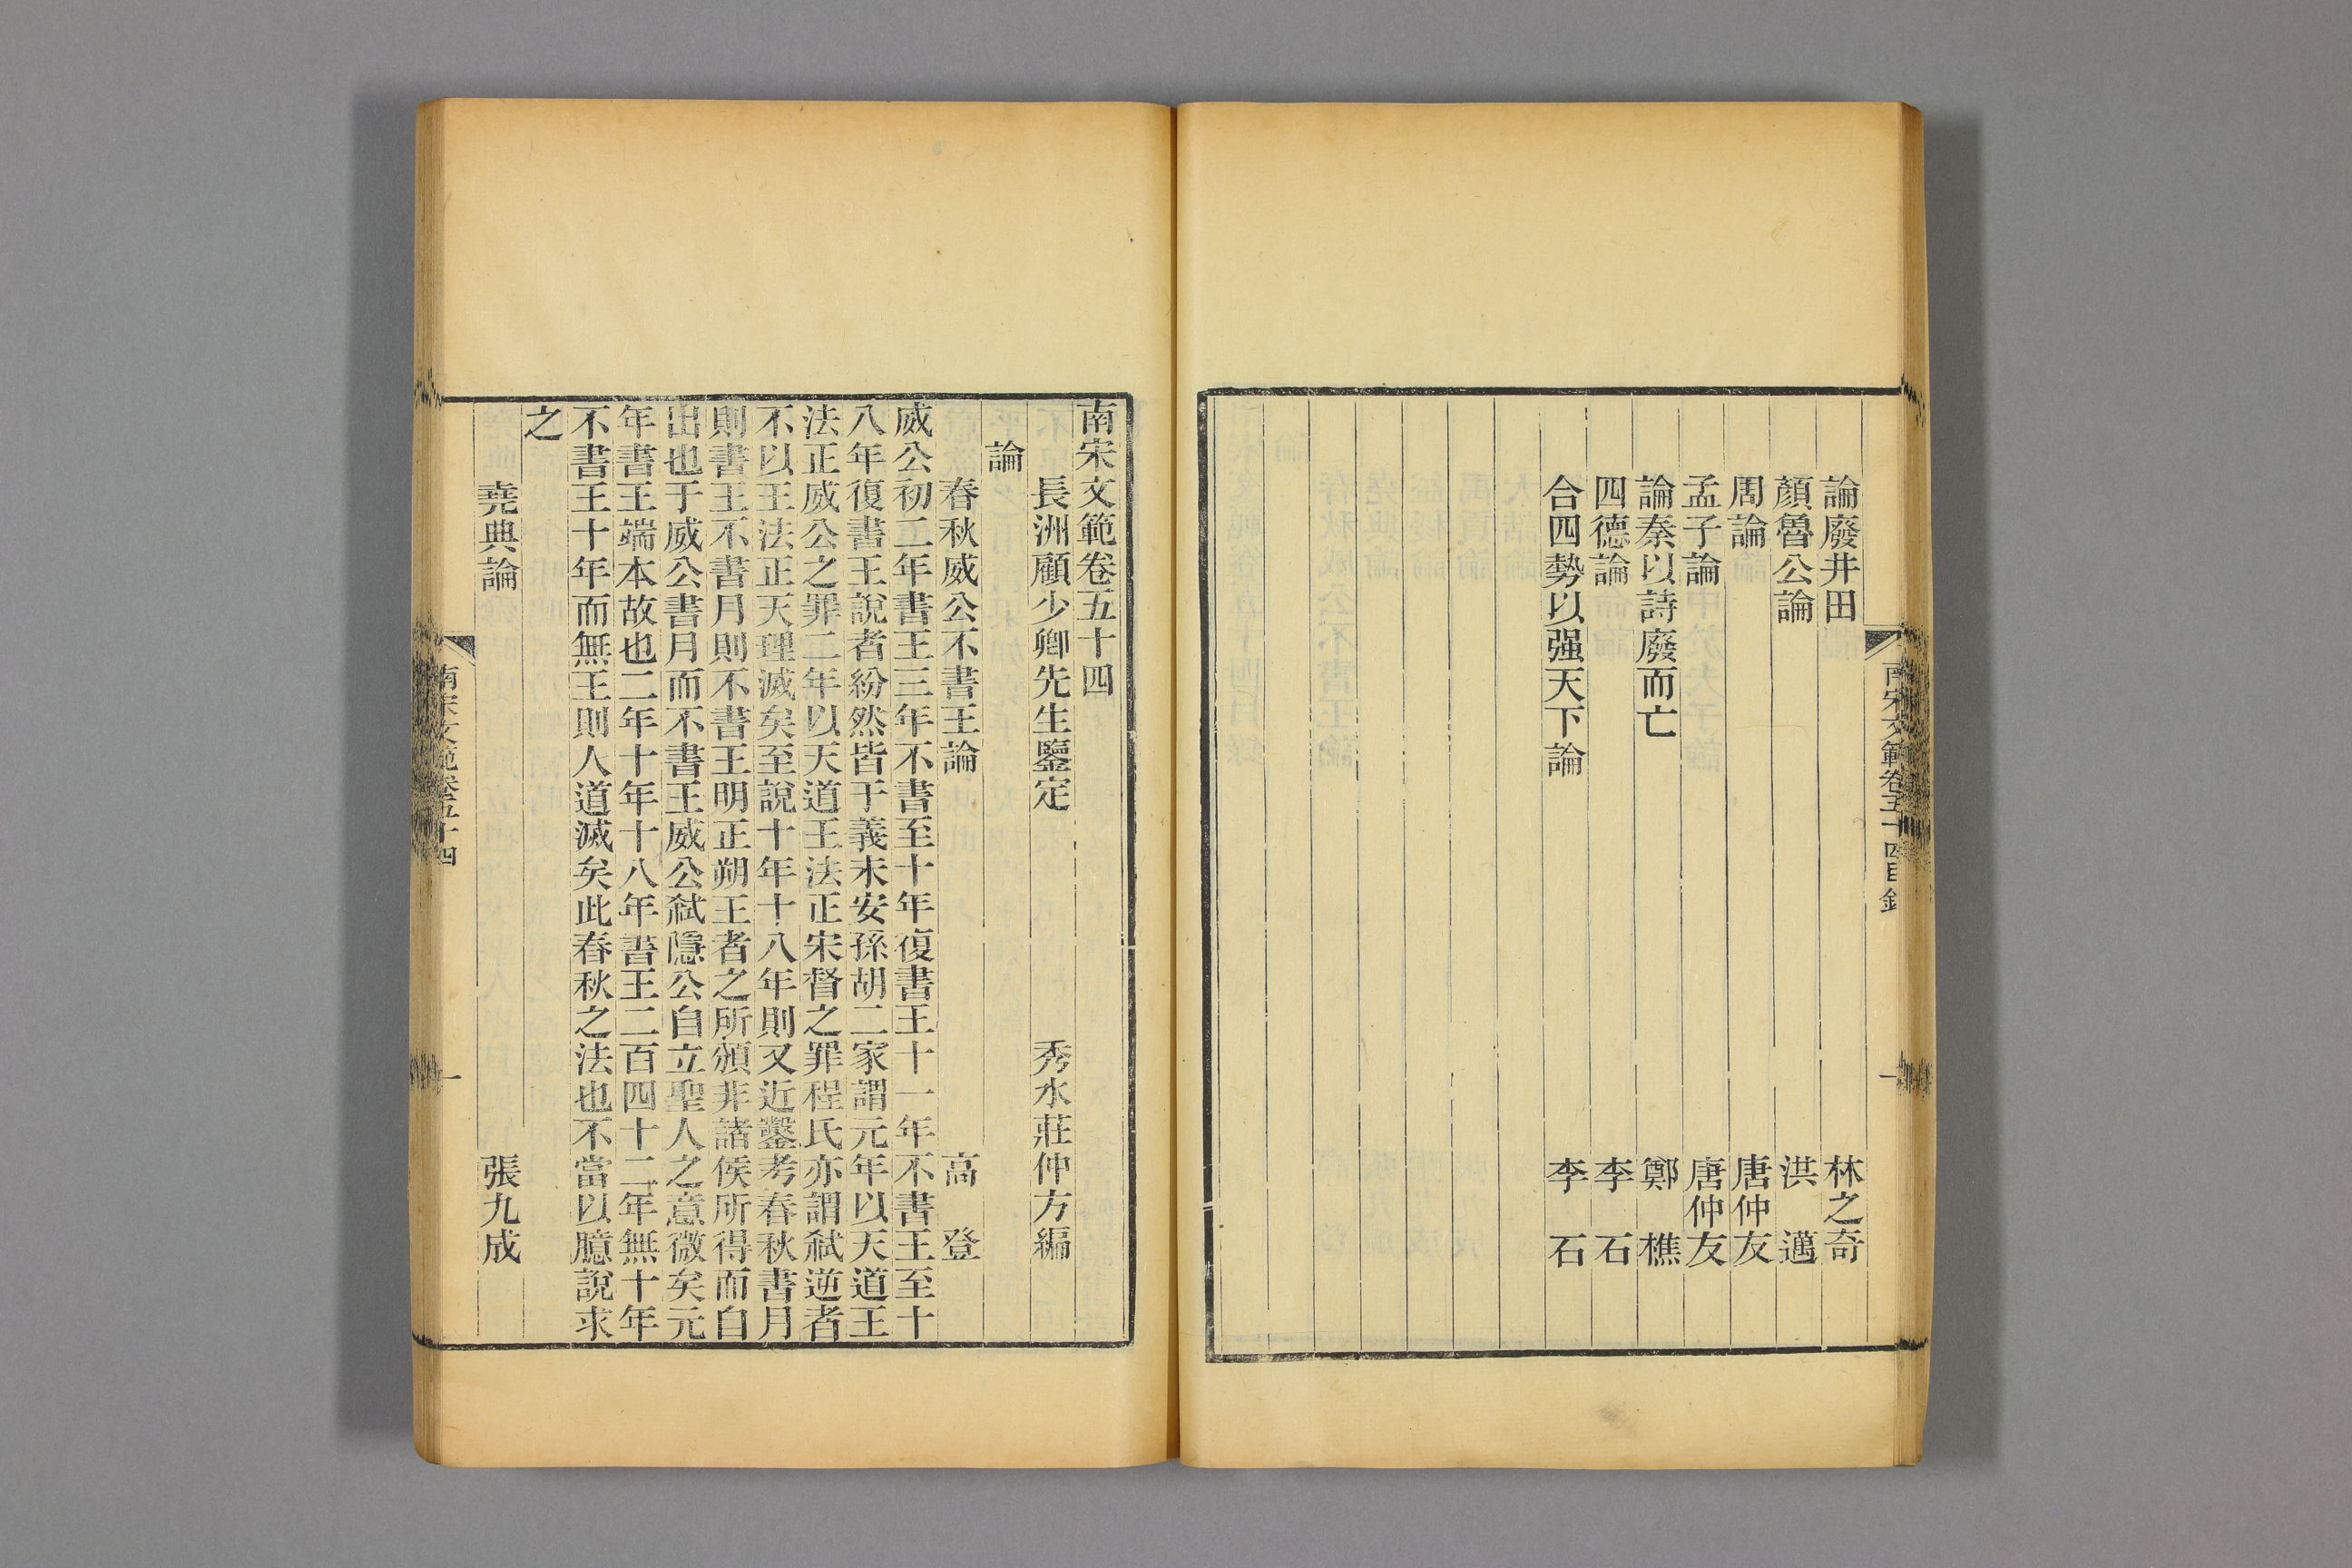 南宋文範卷五十四目錄
一
論廢井田 林之奇
顏魯公論 洪邁
周論 唐仲友
孟子論 唐仲友
論秦以詩廢而亡 鄭樵
四德論 李石
合四勢以强天下論 李石
南宋文範卷五十四
長洲顧少卿先生鑒定 秀水莊仲方編
論
春秋威公不書王論 高登
威公初二年書王三年不書至十年復書王十一年不書王至十
八年復書王說者紛然皆于義未安孫胡二家謂元年以天道王
法正威公之罪二年以天道王法正宋督之罪程氏亦謂弑逆者
不以王法正天理滅矣至說十年十八年則又近鑿考春秋書月
則書王不書月則不書王明正朔王者之所頒非諸侯所得而自
出也于威公書月而不書王威公弑隱公自立聖人之意微矣元
年書王端本故也二年十年十八年書王二百四十二年無十年
不書王十年而無王則人道滅矣此春秋之法也不當以臆說求
之
堯典論 張九成
南宋文範卷五十四
一